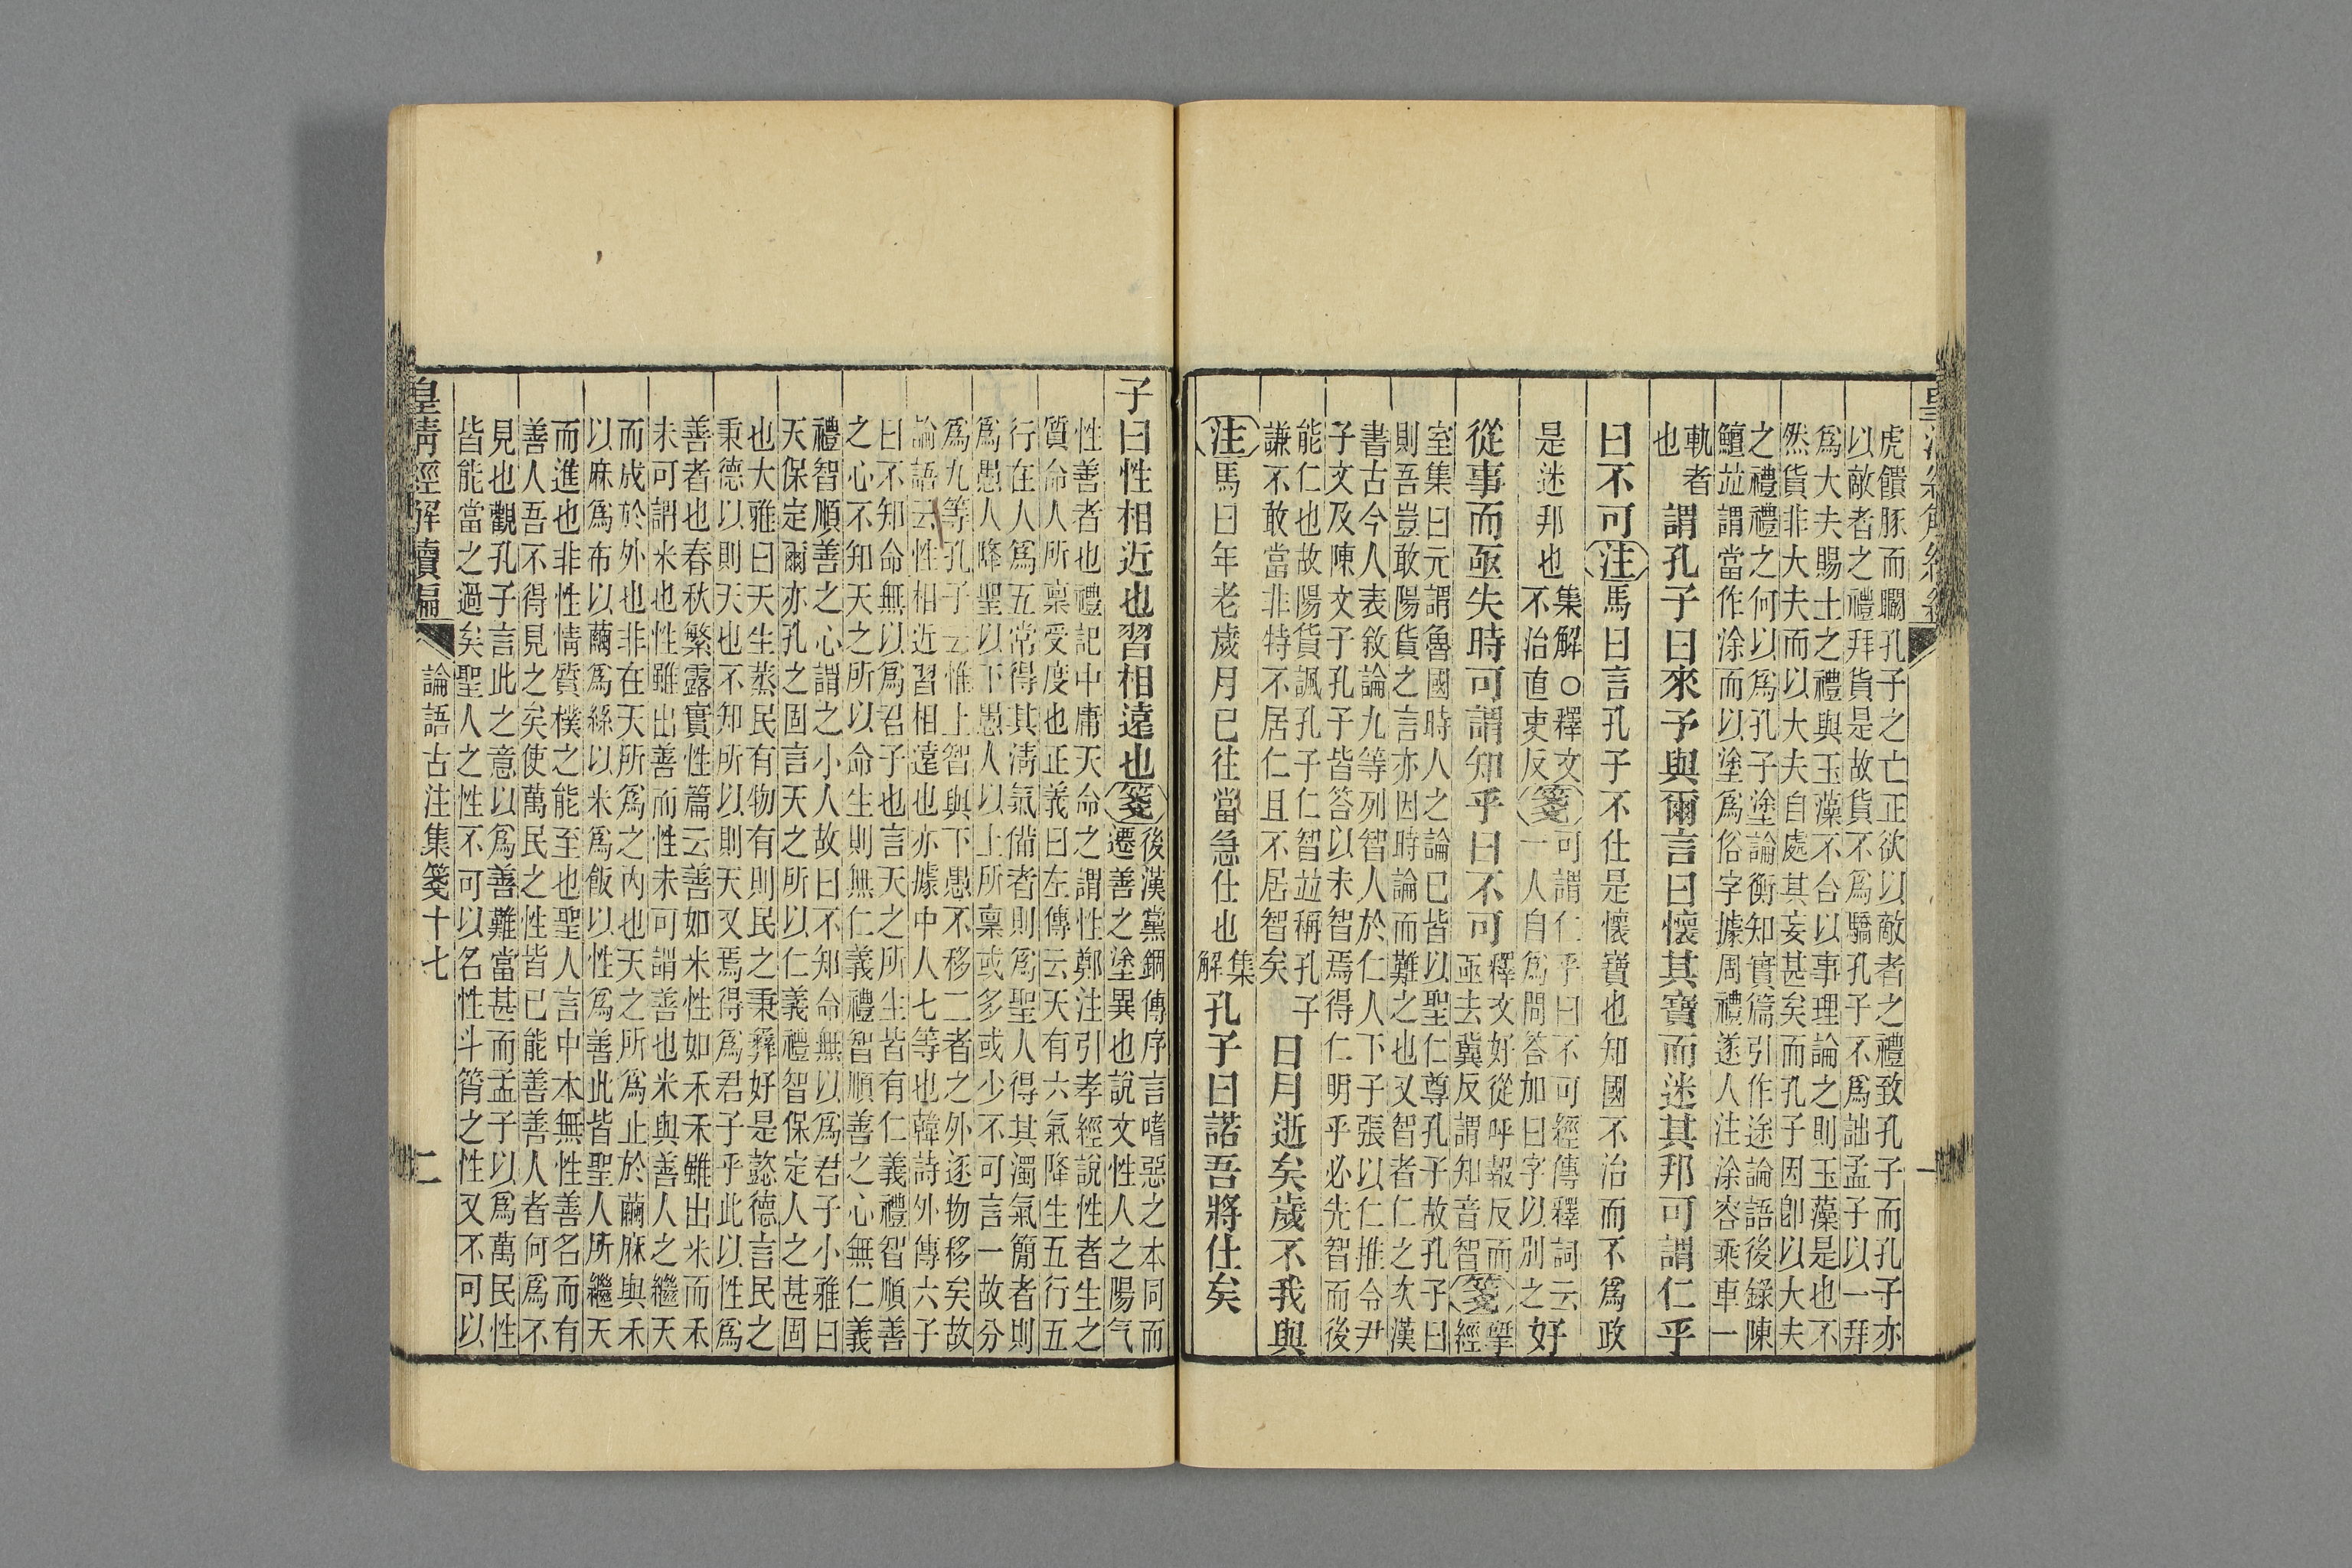 虎饋豚而瞷孔子之亡正欲以敵者之禮致孔子而孔子亦
以敵者之禮拜貨是故貨不爲驕孔子不爲詘孟子以一拜
爲大夫賜士之禮與玉藻不合以事理論之則玉藻是也不
然貨非大夫而以大夫自處其妄甚矣而孔子因卽以大夫
之禮禮之何以爲孔子塗論衡知實篇引作途論語後錄陳
鱣竝謂當作涂而以塗爲俗字據周禮遂人注涂容乘車一
軌者
也
謂孔子曰來予與爾言曰懷其寶而迷其邦可謂仁乎
曰不可注馬曰言孔子不仕是懷寶也知國不治而不爲政
是迷邦也
集解○釋文
不治直吏反
箋
可謂仁乎曰不可經傳釋詞云
一人自爲問答加曰字以別之
好
從事而亟失時可謂知乎曰不可
釋文好從呼報反而
亟去冀反謂知音智
箋
揅
經
室集曰元謂魯國時人之論已皆以聖仁尊孔子故孔子曰
則吾豈敢陽貨之言亦因時論而難之也又智者仁之次漢
書古今人表敘論九等列智人於仁人下子張以仁推令尹
子文及陳文子孔子皆答以未智焉得仁明乎必先智而後
能仁也故陽貨諷孔子仁智竝稱孔子
謙不敢當非特不居仁且不居智矣
日月逝矣歲不我與
注馬曰年老歲月已往當急仕也
集
解
孔子曰諾吾將仕矣
子曰性相近也習相遠也箋
後漢黨錮傳序言嗜惡之本同而
遷善之塗異也說文性人之陽气
性善者也禮記中庸天命之謂性鄭注引孝經說性者生之
質命人所稟受度也正義曰左傳云天有六氣降生五行五
行在人爲五常得其清氣備者則爲聖人得其濁氣簡者則
爲愚人降聖以下愚人以上所稟或多或少不可言一故分
爲九等孔子云惟上智與下愚不移二者之外逐物移矣故
論語云性相近習相遠也亦據中人七等也韓詩外傳六子
曰不知命無以爲君子也言天之所生皆有仁義禮智順善
之心不知天之所以命生則無仁義禮智順善之心無仁義
禮智順善之心謂之小人故曰不知命無以爲君子小雅曰
天保定爾亦孔之固言天之所以仁義禮智保定人之甚固
也大雅曰天生蒸民有物有則民之秉彝好是懿德言民之
秉德以則天也不知所以則天又焉得爲君子乎此以性爲
善者也春秋繁露實性篇云善如米性如禾禾雖出米而禾
未可謂米也性雖出善而性未可謂善也米與善人之繼天
而成於外也非在天所爲之內也天之所爲止於繭麻與禾
以麻爲布以繭爲絲以米爲飯以性爲善此皆聖人所繼天
而進也非性情質樸之能至也聖人言中本無性善名而有
善人吾不得見之矣使萬民之性皆已能善善人者何爲不
見也觀孔子言此之意以爲善難當甚而孟子以爲萬民性
皆能當之過矣聖人之性不可以名性斗筲之性又不可以
皇清經解續編
論語古注集箋十七
二